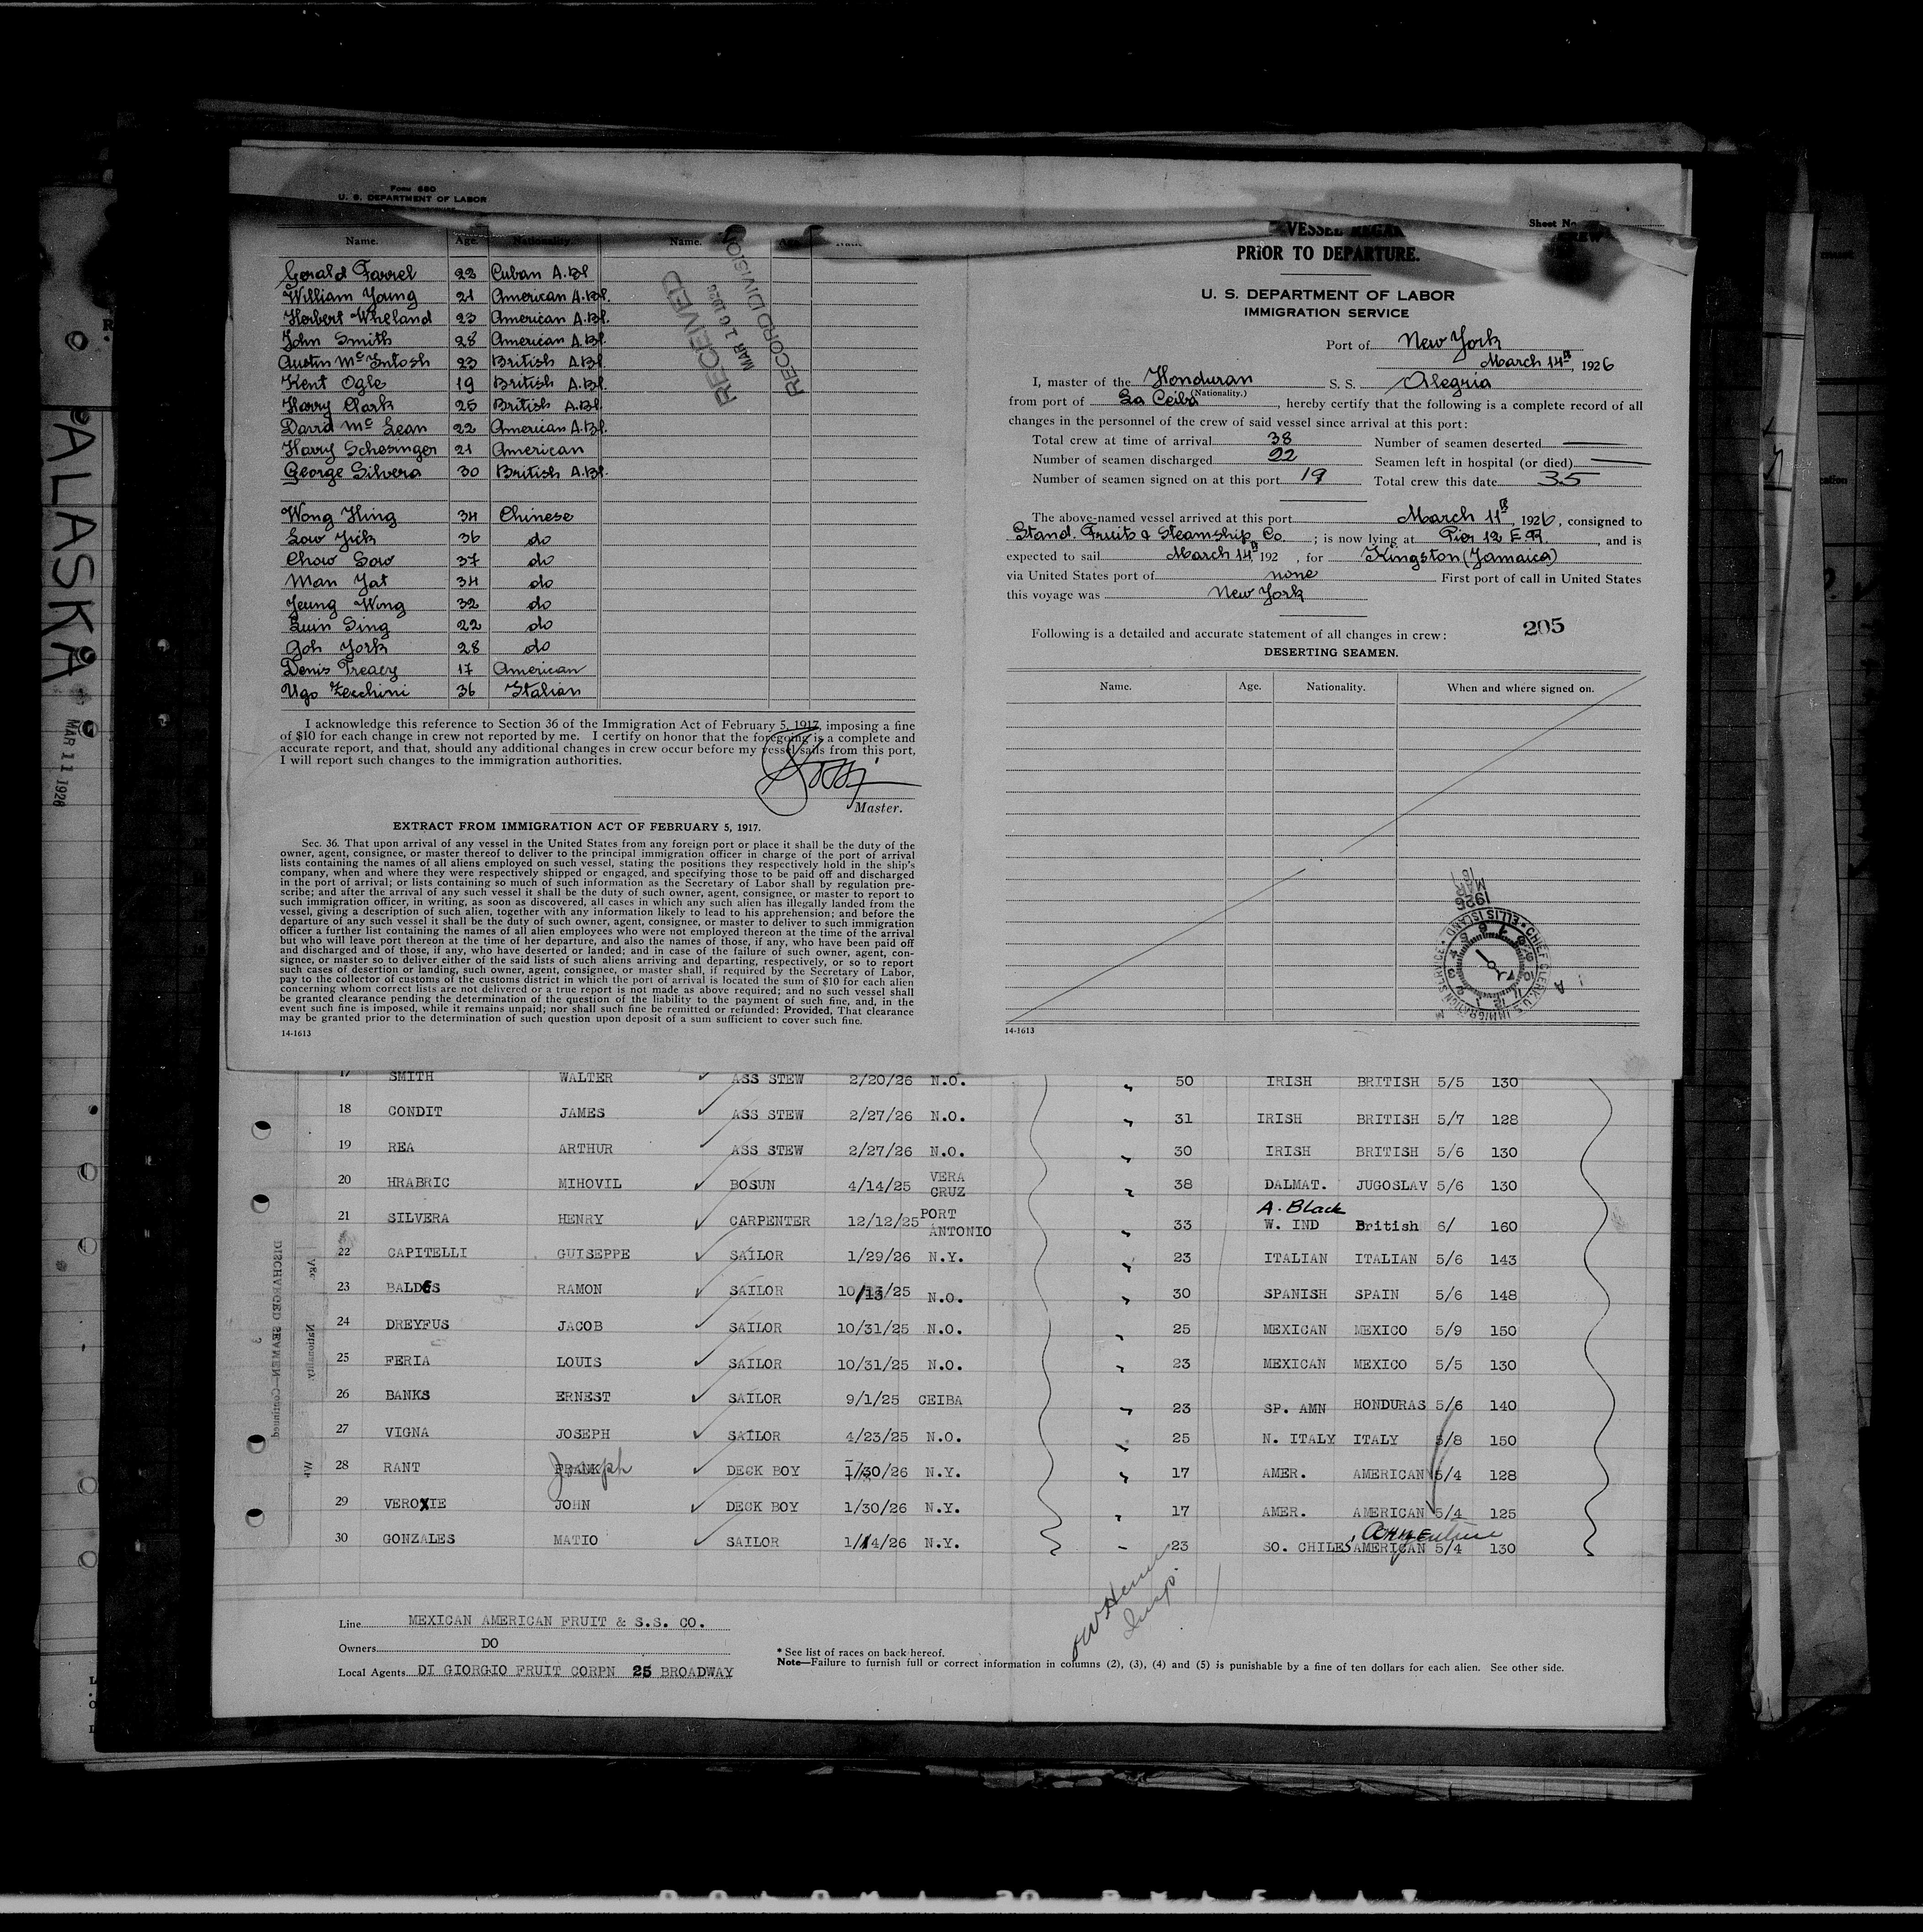 Form 680
U. S. DEPARTMENT OF LABOR
Name. Age. Nationality. Name. Age.
Gerald Farrel 22 Cuban A.Bl
William Young 21 American A.Bl.
Herbert Wheland 23 American A.Bl.
John Smith 28 American A.Bl.
Austin McIntosh 23 British A.Bl.
Kent Ogle 19 British A.Bl.
Harry Clark 25 British A.Bl.
David McLean 22 American A.Bl.
Harry Schesinger 21 American
George Silvera 30 British A.Bl.
Wong Hing 34 Chinese
Low Yick 36 do
Chow Sow 37 do
Man Yat 34 do
Yeung Wing 32 do
Luin Sing 22 do
Goh York 28 do
Denis Treacy 17 American
Ugo Zecchini 36 Italian
RECEIVED
MAR 16 1926
RECORD DIVISION
I acknowledge this reference to Section 36 of the Immigration Act of February 5, 1917, imposing a fine
of $10 for each change in crew not reported by me. I certify on honor that the foregoing is a complete and
accurate report, and that, should any additional changes in crew occur before my vessel sails from this port,
I will report such changes to the immigration authorities.
Master.
EXTRACT FROM IMMIGRATION ACT OF FEBRUARY 5, 1917.
Sec. 36. That upon arrival of any vessel in the United States from any foreign port or place it shall be the duty of the
owner, agent, consignee, or master thereof to deliver to the principal immigration officer in charge of the port of arrival
lists containing the names of all aliens employed on such vessel, stating the positions they respectively hold in the ship's
company, when and where they were respectively shipped or engaged, and specifying those to be paid off and discharged
in the port of arrival; or lists containing so much of such information as the Secretary of Labor shall by regulation pre-
scribe; and after the arrival of any such vessel it shall be the duty of such owner, agent, consignee, or master to report to
such immigration officer, in writing, as soon as discovered, all cases in which any such alien has illegally landed from the
vessel, giving a description of such alien, together with any information likely to lead to his apprehension; and before the
departure of any such vessel it shall be the duty of such owner, agent, consignee, or master to deliver to such immigration
officer a further list containing the names of all alien employees who were not employed thereon at the time of the arrival
but who will leave port thereon at the time of her departure, and also the names of those, if any, who have been paid off
and discharged and of those, if any, who have deserted or landed; and in case of the failure of such owner, agent, con-
signee, or master so to deliver either of the said lists of such aliens arriving and departing, respectively, or so to report
such cases of desertion or landing, such owner, agent, consignee, or master shall, if required by the Secretary of Labor,
pay to the collector of customs of the customs district in which the port of arrival is located the sum of $10 for each alien
concerning whom correct lists are not delivered or a true report is not made as above required; and no such vessel shall
be granted clearance pending the determination of the question of the liability to the payment of such fine, and, in the
event such fine is imposed, while it remains unpaid; nor shall such fine be remitted or refunded: Provided, That clearance
may be granted prior to the determination of such question upon deposit of a sum sufficient to cover such fine.
14-1613
Sheet No.
VESSEL REGA
PRIOR TO DEPARTURE.
U. S. DEPARTMENT OF LABOR
IMMIGRATION SERVICE
Port of New York
March 14th, 1926
I, master of the Honduran S. S. Alegria
(Nationality.)
from port of La Ceiba, hereby certify that the following is a complete record of all
changes in the personnel of the crew of said vessel since arrival at this port:
Total crew at time of arrival 38 Number of seamen deserted
Number of seamen discharged 22 Seamen left in hospital (or died)
Number of seamen signed on at this port 19 Total crew this date 35
The above-named vessel arrived at this port March 11th, 1926, consigned to
Stand. Fruit & Steamship Co.; is now lying at Pier 12 E.R., and is
expected to sail March 14th, 192 , for Kingston (Jamaica)
via United States port of none First port of call in United States
this voyage was New York
205
Following is a detailed and accurate statement of all changes in crew:
DESERTING SEAMEN.
Name. Age. Nationality. When and where signed on.
1926
MAR
16
CHIEF CLERK, U.S. IMMIGRATION SERVICE. ELLIS ISLAND
14-1613
17 SMITH WALTER ASS STEW 2/20/26 N.O. 50 IRISH BRITISH 5/5 130
18 CONDIT JAMES ASS STEW 2/27/26 N.O. 31 IRISH BRITISH 5/7 128
19 REA ARTHUR ASS STEW 2/27/26 N.O. 30 IRISH BRITISH 5/6 130
20 HRABRIC MIHOVIL BOSUN 4/14/25 VERA CRUZ 38 DALMAT. JUGOSLAV 5/6 130
A. Black
21 SILVERA HENRY CARPENTER 12/12/25 PORT ANTONIO 33 W. IND British 6/ 160
22 CAPITELLI GUISEPPE SAILOR 1/29/26 N.Y. 23 ITALIAN ITALIAN 5/6 143
23 BALDES RAMON SAILOR 10/13/25 N.O. 30 SPANISH SPAIN 5/6 148
24 DREYFUS JACOB SAILOR 10/31/25 N.O. 25 MEXICAN MEXICO 5/9 150
25 FERIA LOUIS SAILOR 10/31/25 N.O. 23 MEXICAN MEXICO 5/5 130
26 BANKS ERNEST SAILOR 9/1/25 CEIBA 23 SP. AMN HONDURAS 5/6 140
27 VIGNA JOSEPH SAILOR 4/23/25 N.O. 25 N. ITALY ITALY 5/8 150
28 RANT FRANK Joseph DECK BOY 1/30/26 N.Y. 17 AMER. AMERICAN 5/4 128
29 VEROXIE JOHN DECK BOY 1/30/26 N.Y. 17 AMER. AMERICAN 5/4 125
Argentine
30 GONZALES MATIO SAILOR 1/14/26 N.Y. 23 SO. CHILES AMERICAN 5/4 130
Insp.
Line MEXICAN AMERICAN FRUIT & S.S. CO.
Owners DO
Local Agents DI GIORGIO FRUIT CORPN 25 BROADWAY
* See list of races on back hereof.
Note—Failure to furnish full or correct information in columns (2), (3), (4) and (5) is punishable by a fine of ten dollars for each alien. See other side.
DISCHARGED SEAMEN—Continued
Nationality.
ALASKA
MAR 11 1926